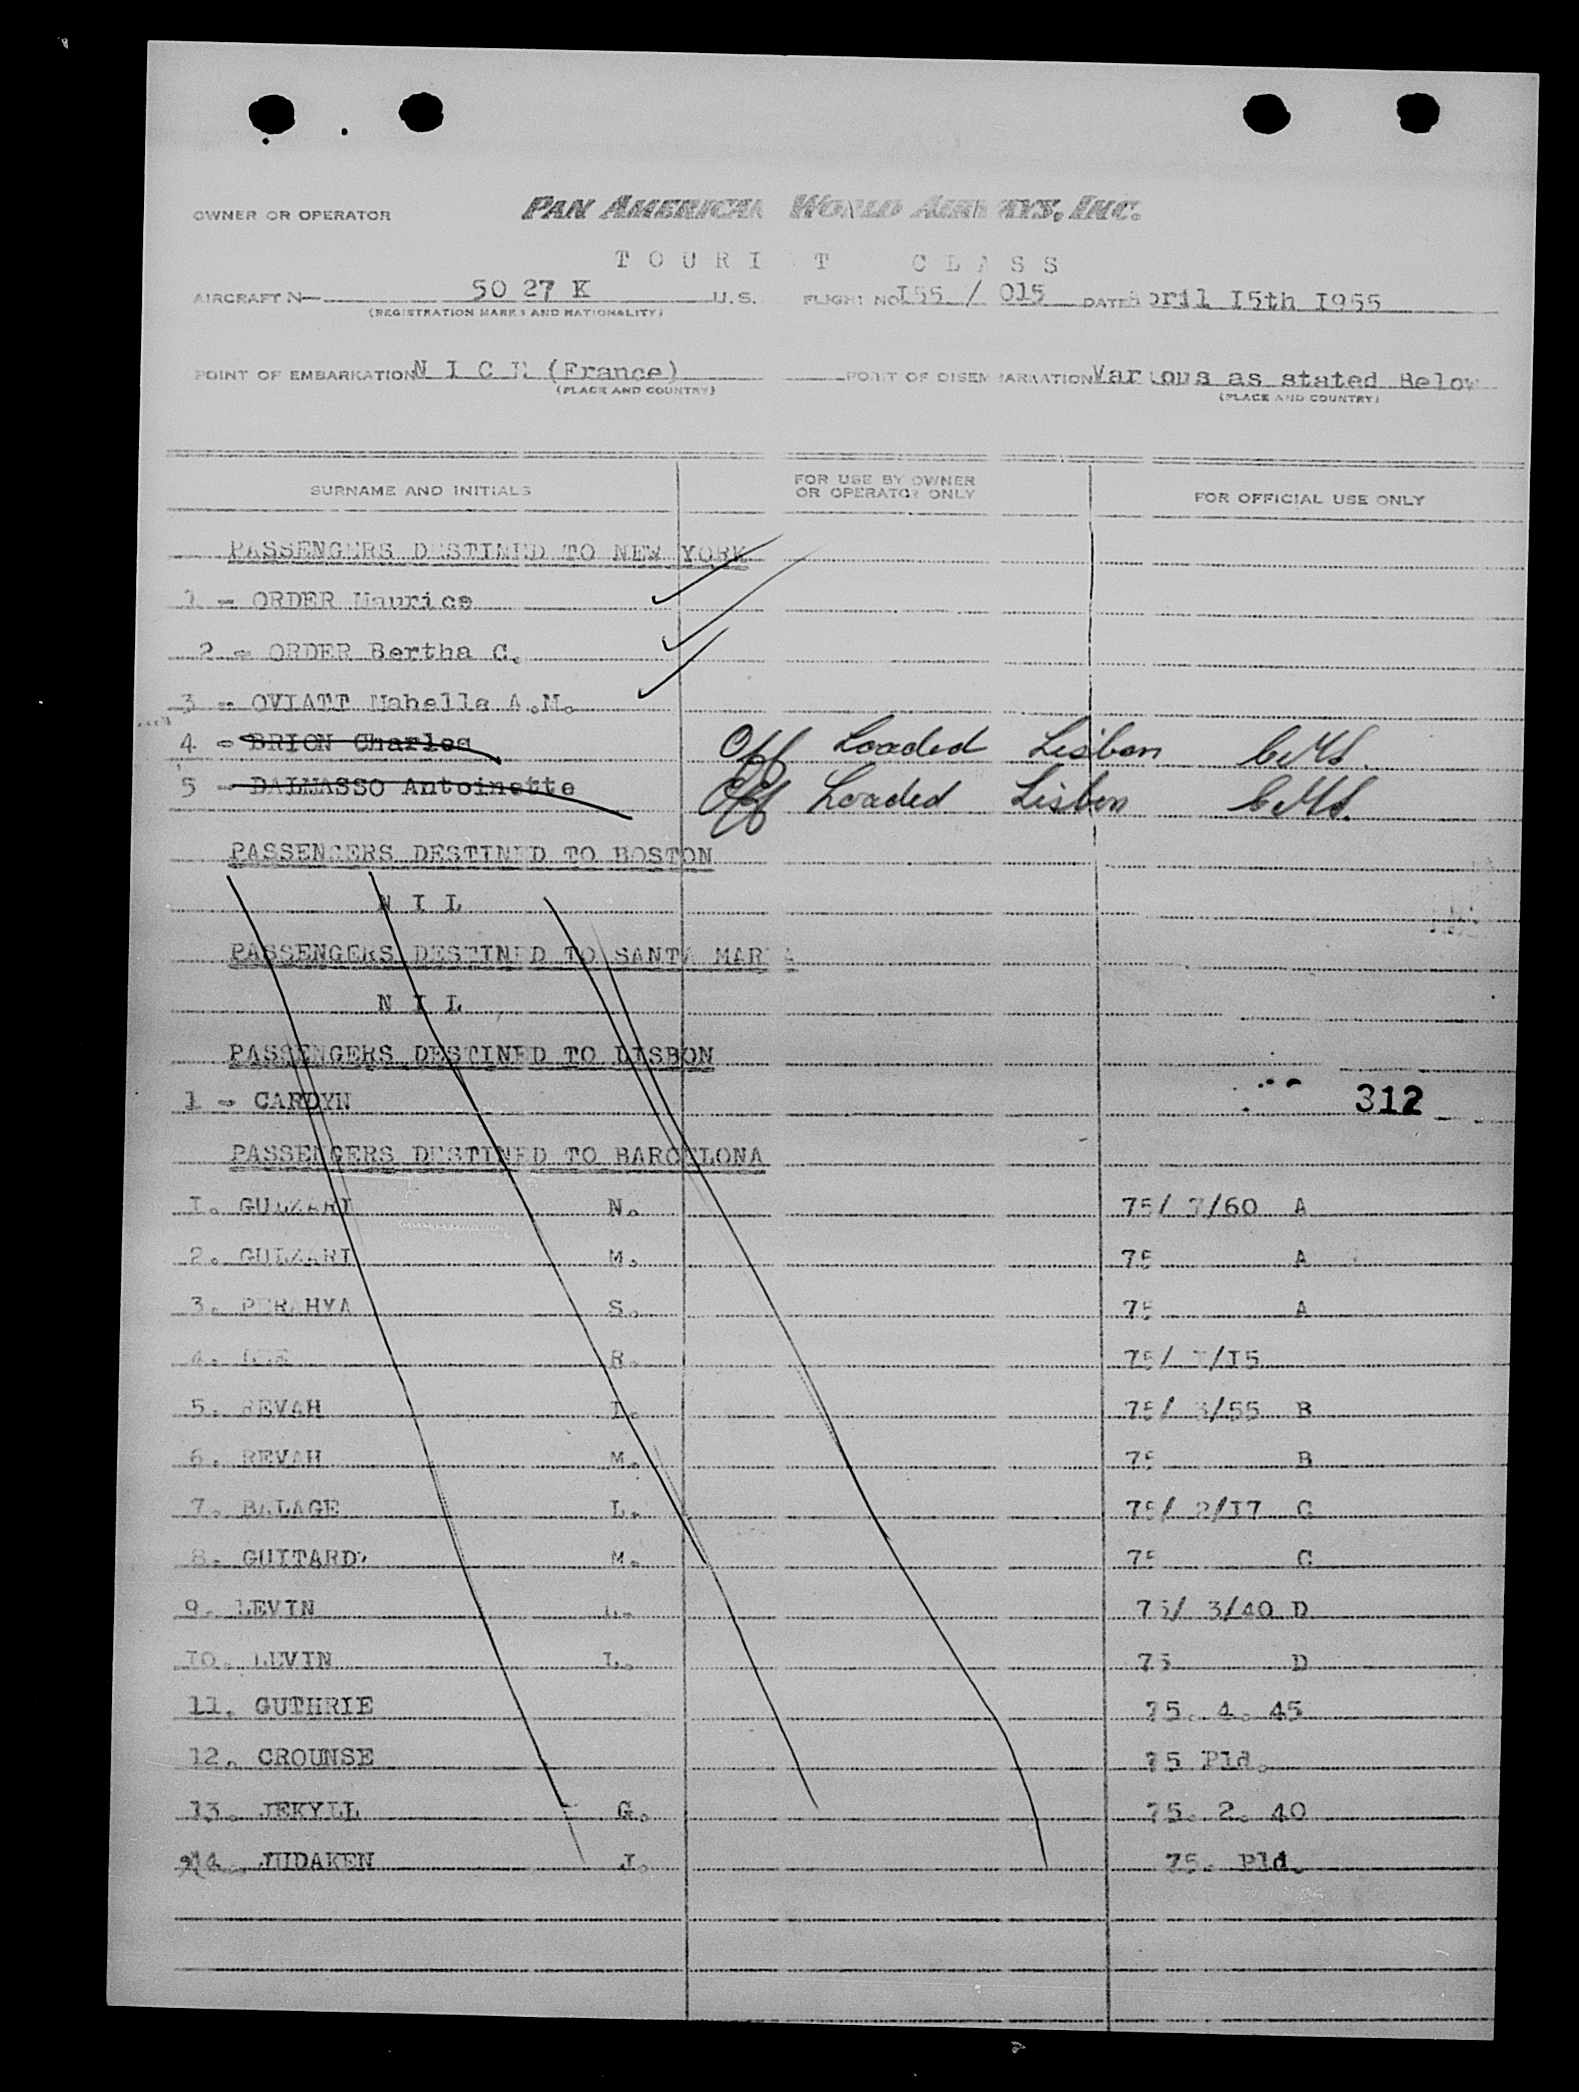 OWNER OR OPERATOR PAN AMERICAN WORLD AIRWAYS, INC.
T O U R I S T C L A S S
AIRCRAFT N— 50 27 K U.S. FLIGHT NO I55 / 015 DATE April I5th I955
(REGISTRATION MARKS AND NATIONALITY)
POINT OF EMBARKATION N I C E (France) POINT OF DISEMBARKATION Various as stated Below
(PLACE AND COUNTRY) (PLACE AND COUNTRY)
SURNAME AND INITIALS FOR USE BY OWNER OR OPERATOR ONLY FOR OFFICIAL USE ONLY
PASSENGERS DESTINED TO NEW YORK
1 - ORDER Maurice
2 - ORDER Bertha C.
3 - OVIATT Mabelle A.M.
4 - BRION Charles Off Loaded Lisbon
5 - DALMASSO Antoinette Off Loaded Lisbon
PASSENGERS DESTINED TO BOSTON
N I L
PASSENGERS DESTINED TO SANTA MARIA
N I L
PASSENGERS DESTINED TO LISBON
1 - CARDYN 312
PASSENGERS DESTINED TO BARCELONA
I. GULZARI N. 75/ 7/60 A
2. GULZARI M. 75 A
3. PERAHYA S. 75 A
4. R. 75/ I/I5
5. REVAH I. 75/ 3/55 B
6. REVAH M. 75 B
7. BALAGE L. 75/ 2/I7 C
8. GUITARD M. 75 C
9. LEVIN 75/ 3/40 D
IO. LEVIN L. 75 D
11. GUTHRIE 75. 4. 45
12. CROUNSE 75 Pld.
13. JEKYLL G. 75. 2. 40
14. JUDAKEN J. 75. Pld.